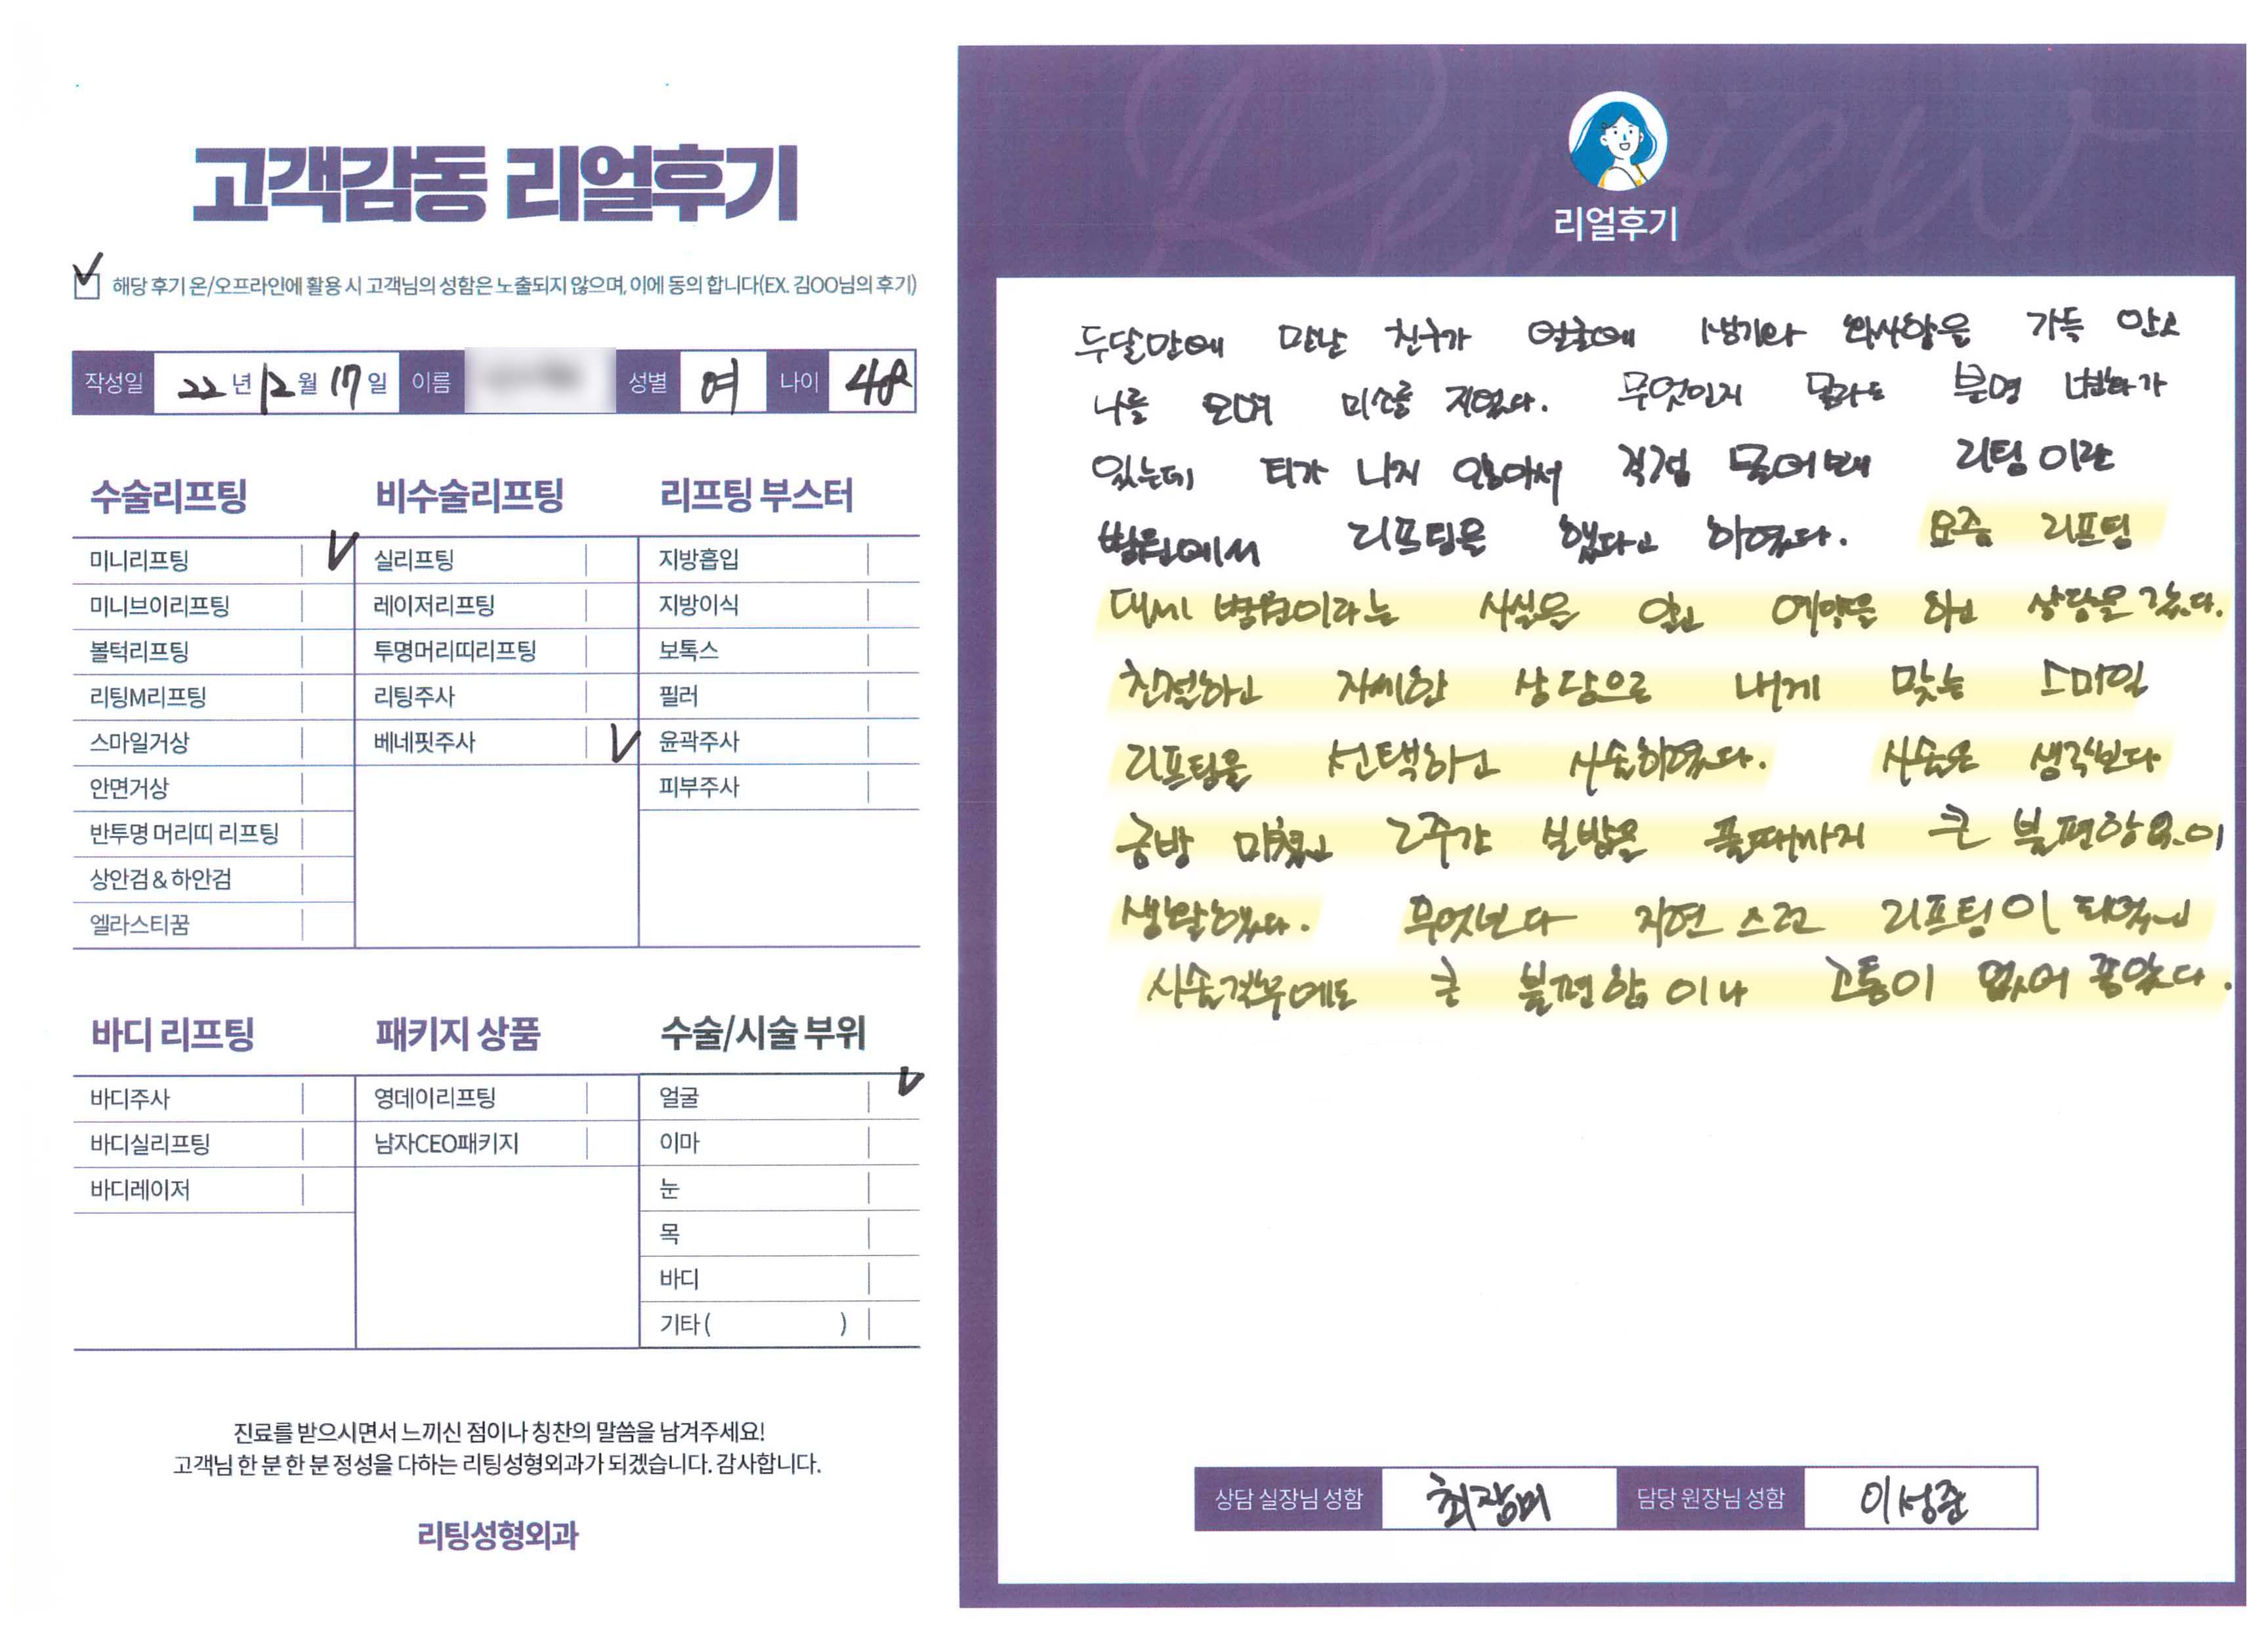 고객감동 리얼후기
해당 후기 온/오프라인에 활용 시 고객님의 성함은 노출되지 않으며, 이에 동의 합니다(EX. 김OO님의 후기)
작성일 22년 12월 17일 이름 성별 여 나이 48
수술리프팅
미니리프팅
미니브이리프팅
볼턱리프팅
리팅M리프팅
스마일거상
안면거상
반투명 머리띠 리프팅
상안검 & 하안검
엘라스티꿈
비수술리프팅
실리프팅
레이저리프팅
투명머리띠리프팅
리팅주사
베네핏주사
리프팅 부스터
지방흡입
지방이식
보톡스
필러
윤곽주사
피부주사
바디 리프팅
바디주사
바디실리프팅
바디레이저
패키지 상품
영데이리프팅
남자CEO패키지
수술/시술 부위
얼굴
이마
눈
목
바디
기타 ( )
진료를 받으시면서 느끼신 점이나 칭찬의 말씀을 남겨주세요!
고객님 한 분 한 분 정성을 다하는 리팅성형외과가 되겠습니다. 감사합니다.
리팅성형외과
Review
리얼후기
두달만에 만난 친구가 얼굴에 생기와 화사함을 가득 안고
나를 보며 미소를 지었다. 무엇인지 몰라도 분명 변화가
있는데 티가 나지 않아서 직접 물어보니 리팅이란
병원에서 리프팅을 했다고 하였다. 요즘 리프팅
대세 병원이라는 사실을 알고 예약을 하고 상담을 갔다.
친절하고 자세한 상담으로 내게 맞는 스마일
리프팅을 선택하고 시술하였다. 시술은 생각보다
금방 마쳤고 2주간 실밥을 풀때까지 큰 불편함 없이
생활했다. 무엇보다 자연스런 리프팅이 되었고
시술전후에도 큰 불편함이나 고통이 없어 좋았다.
상담 실장님 성함 최장미 담당 원장님 성함 이성준